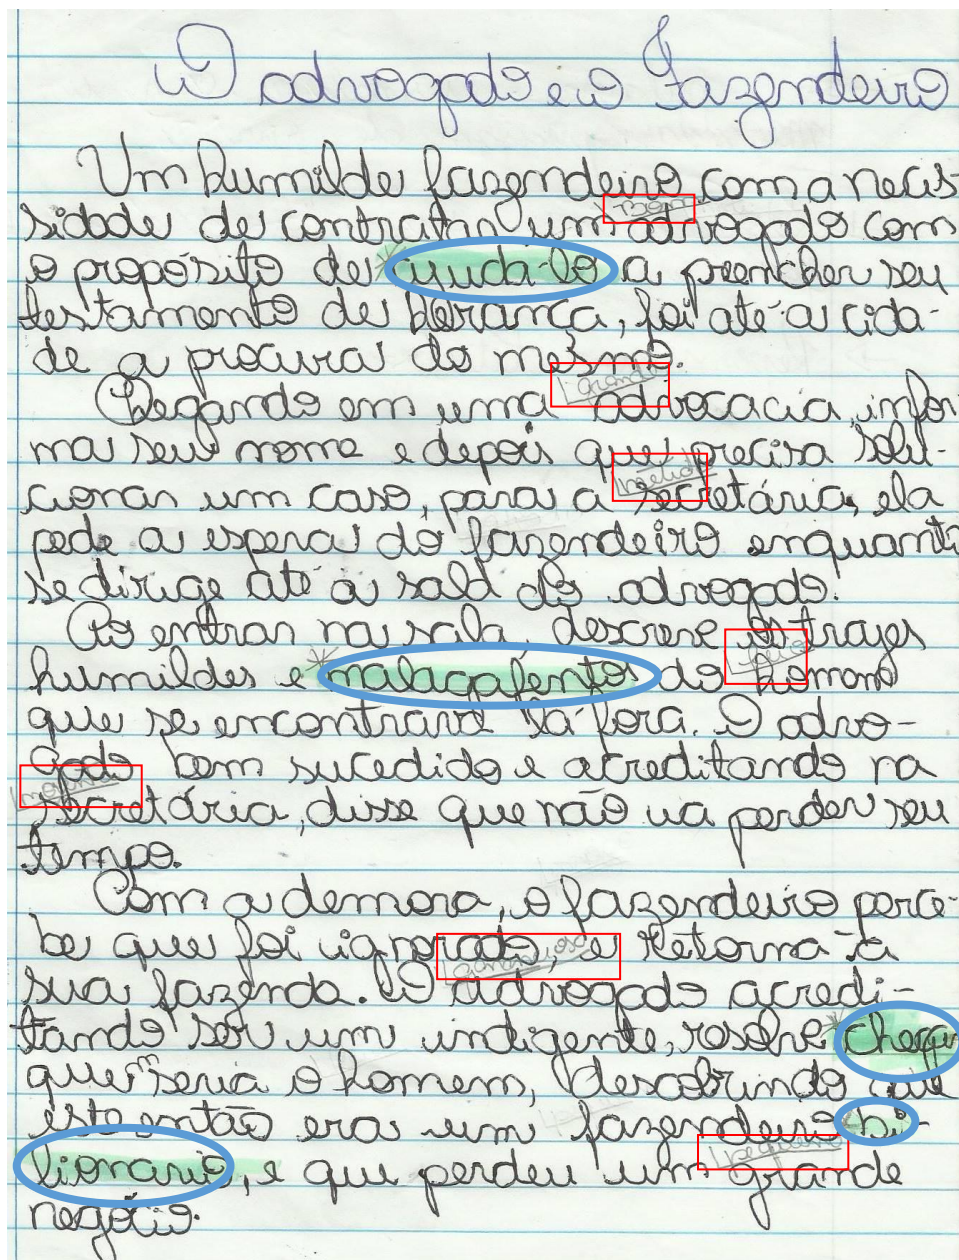 O advogado e o Fazendeiro
Um humilde fazendeiro com a necis-
bom
sidade de contratar um advogado com
o propósito de ajuda-lo a preencher seu
testamento de herança, foi até a cida-
de a procura do mesmo.
grande
Chegando em uma advocacia, infor
ma seu nome e depois que precisa solu-
metida
cionar um caso, para a secretária, ela
pede a espera do fazendeiro enquanto
se dirige até a sala do advogado.
Ao entrar na sala, descreve os trajes
feio
humildes e malacafentos do homem
que se encontrava lá fora. O advo-
gado bem sucedido e acreditando na
secretária, disse que não ia perder seu
tempo.
Com a demora, o fazendeiro perce-
be que foi ignorado, e retorna a
ganancioso
sua fazenda. O advogado acredi-
tando ser um indigente, resolve checar
quem seria o homem, descobrindo que
este então era um fazendeiro bi-
pequeno
lionario, e que perdeu um grande
negócio.